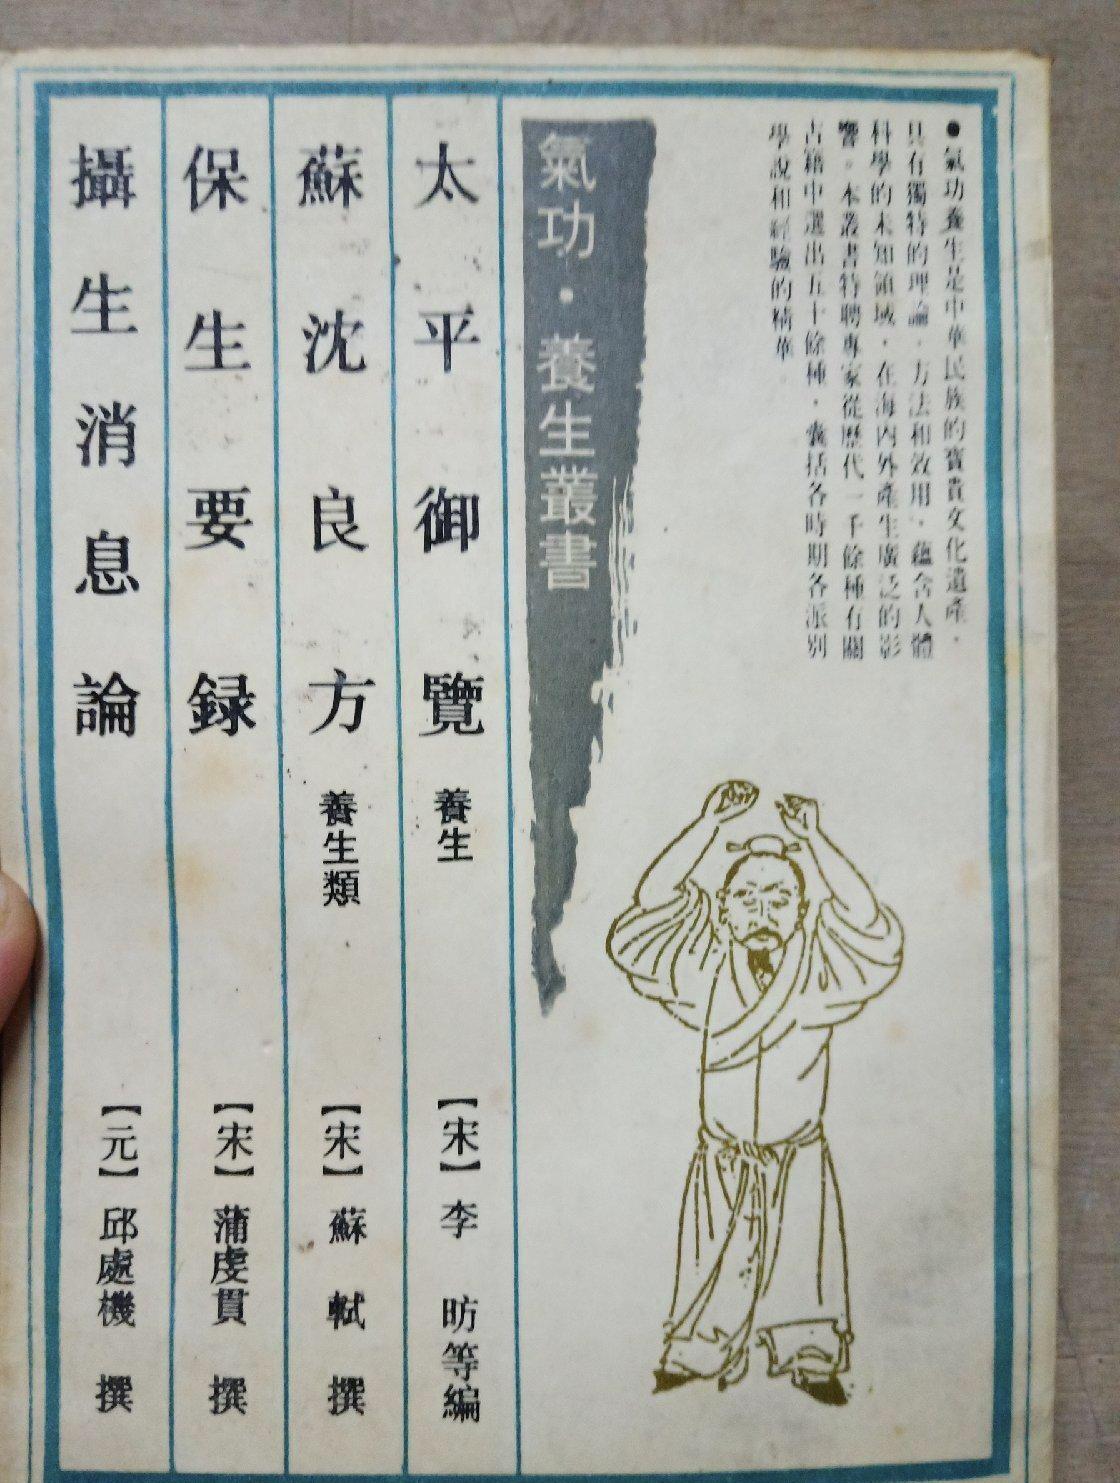 ●氣功養生是中華民族的寶貴文化遺產，
具有獨特的理論、方法和效用，蘊含人體
科學的未知領域，在海內外產生廣泛的影
響。本叢書特聘專家從歷代一千餘種有關
古籍中選出五十餘種，囊括各時期各派別
學說和經驗的精華。
氣功·養生叢書
太平御覽 養生 【宋】李昉等編
蘇沈良方 養生類 【宋】蘇軾撰
保生要録 【宋】蒲虔貫撰
攝生消息論 【元】邱處機撰